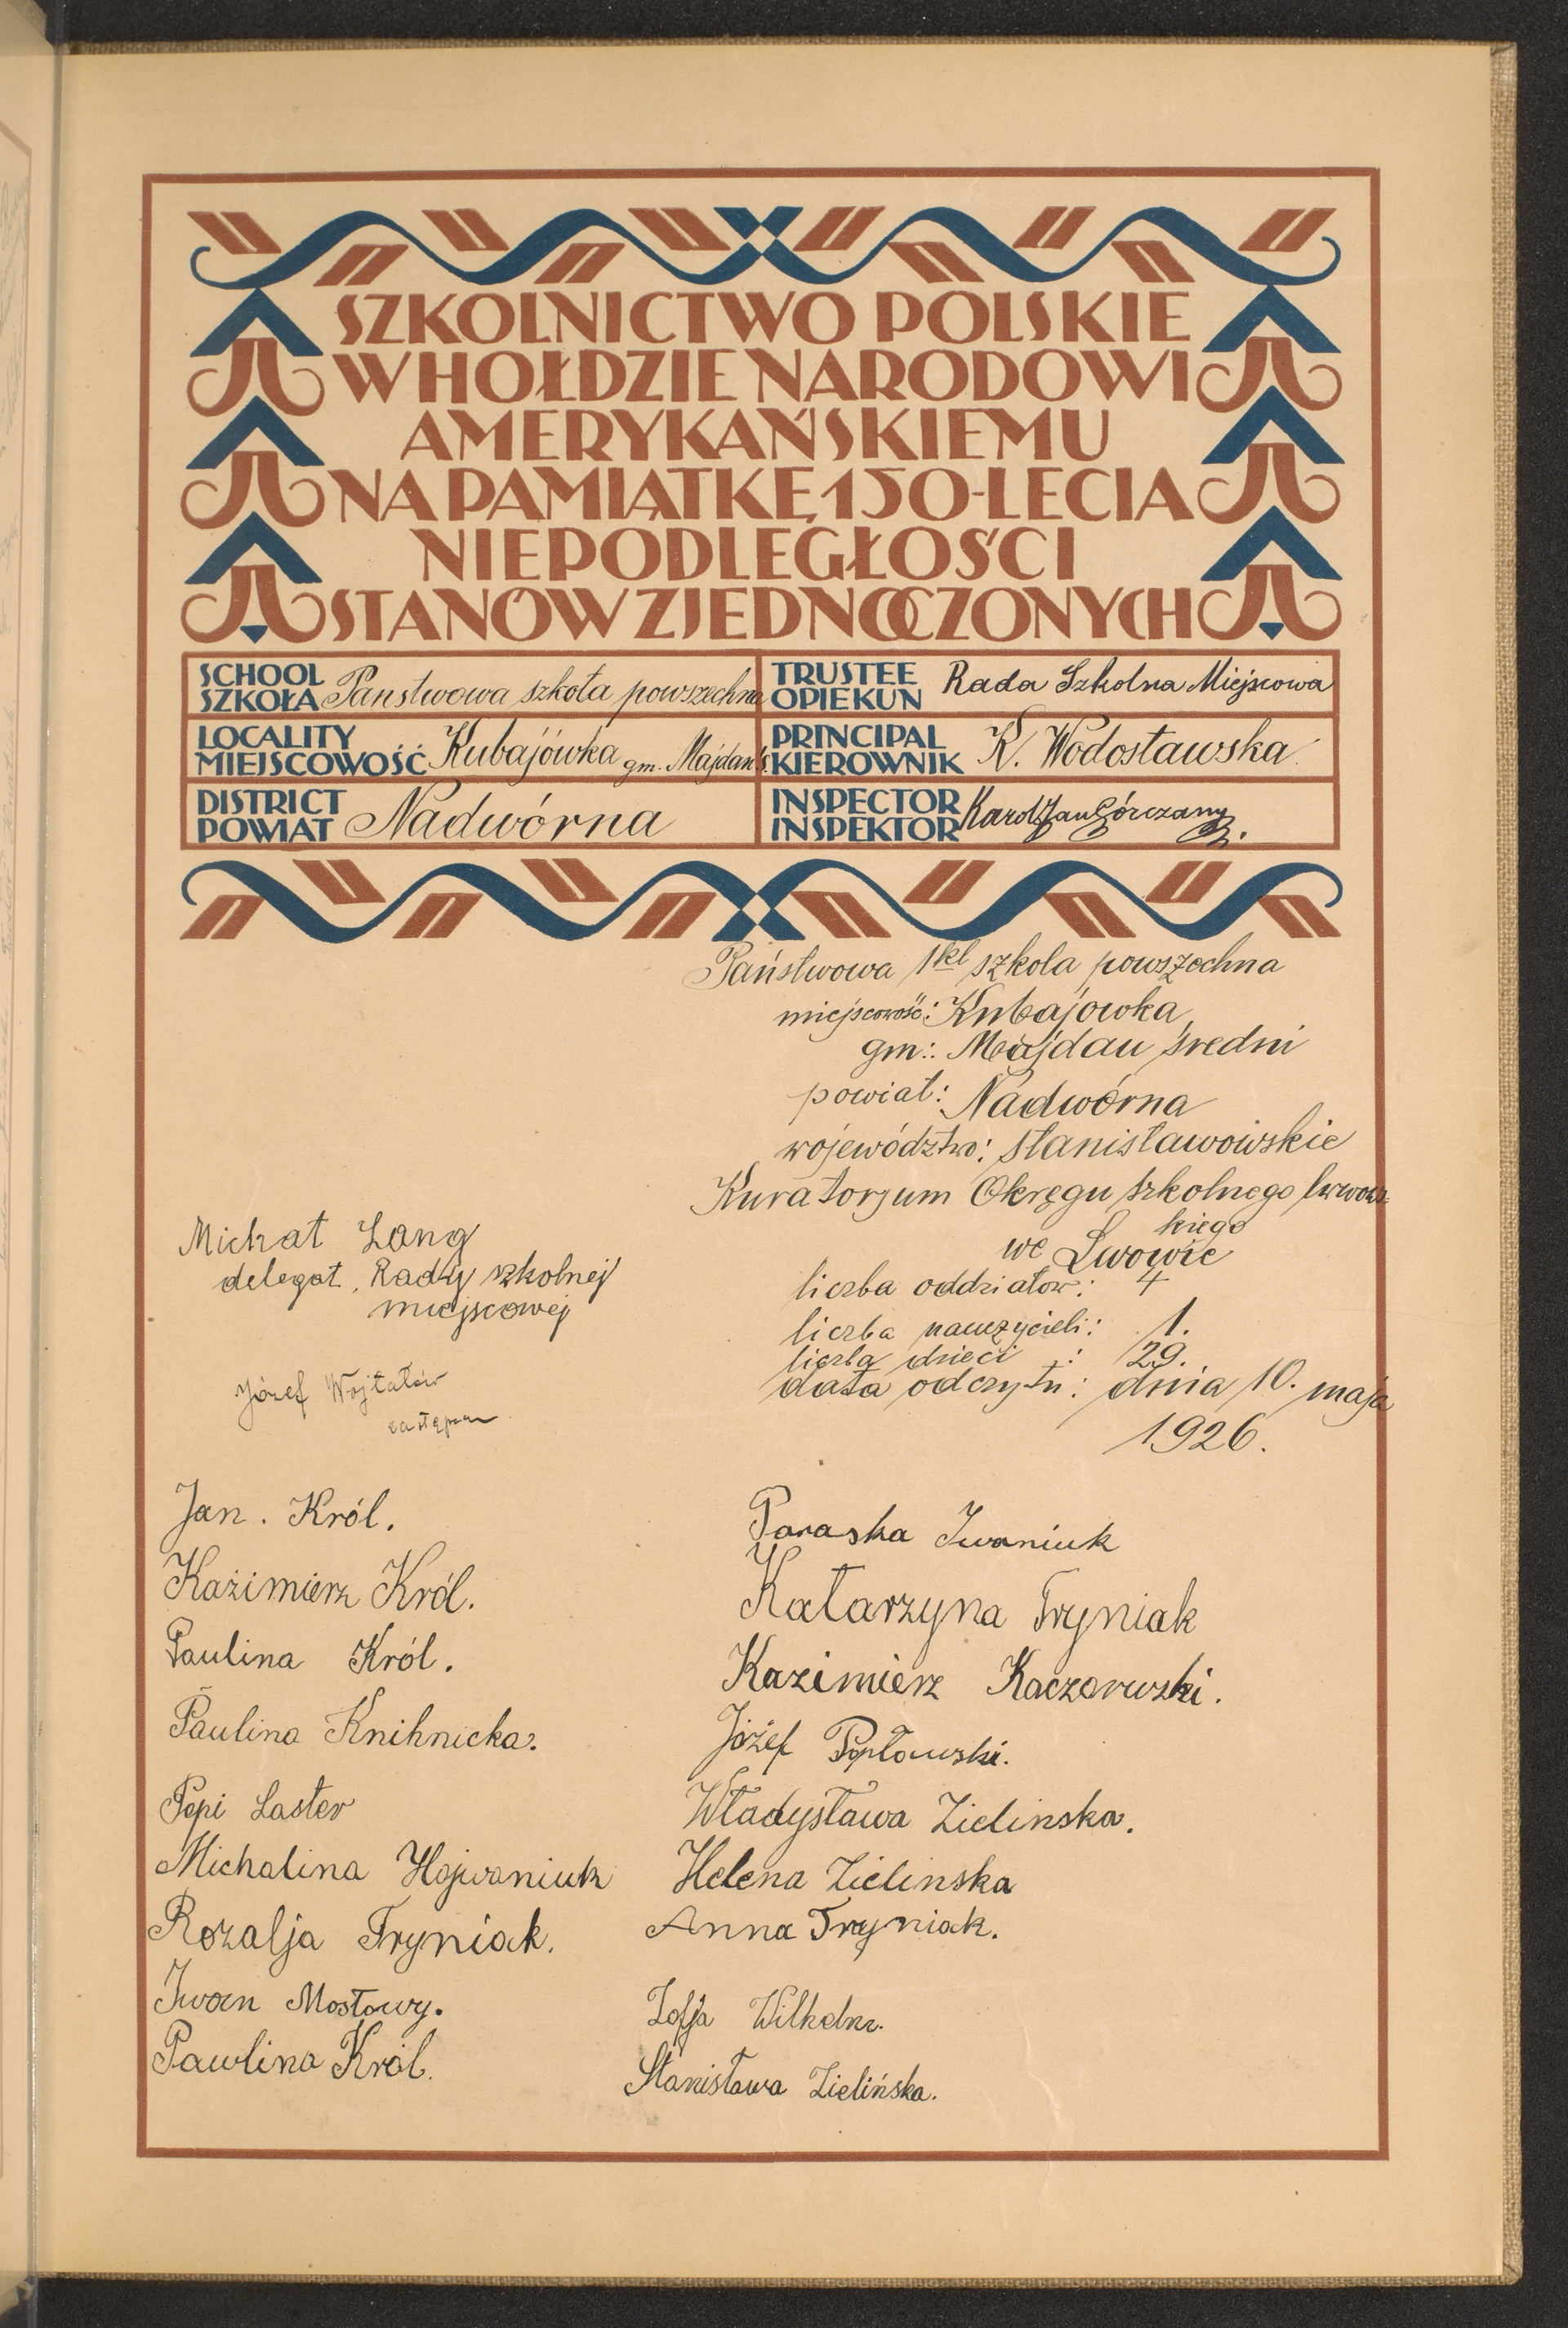 SZKOLNICTWO POLSKIE
W HOŁDZIE NARODOWI
AMERYKAŃSKIEMU
NA PAMIĄTKĘ 150-LECIA
NIEPODLEGŁOŚCI
STANÓW ZJEDNOCZONYCH
SCHOOL
SZKOŁA Panstwowa szkoła powszechna
TRUSTEE
OPIEKUN Rada Szkolna Miejscowa
LOCALITY
MIEJSCOWOŚĆ Kubajówka gm. Majdan s.
PRINCIPAL
KIEROWNIK K. Wodosławska
DISTRICT
POWIAT Nadwórna
INSPECTOR
INSPEKTOR Karol Jan Górczany
Państwowa 1kl szkola powszechna
miejscowość: Kubajowka
gm.: Majdan średni
powiat: Nadwórna
województwo: stanisławowskie
Kuratorjum Okręgu szkolnego lwows-
kiego
we Lwowie
liczba oddziałow: 4
liczba nauczycieli: 1.
liczba dzieci : 29.
data odczytu: dnia 10. maja
1926.
Michał Lang
delegat Rady szkolnej
miejscowej
Józef Wojtałów
zastępca
Jan. Król.
Kazimierz Król.
Paulina Król.
Paulina Knihnicka.
Pepi Laster
Michalina Hojwaniuk
Rozalja Tryniak.
Iwan Mostowy.
Pawlina Król.
Paraska Iwaniuk
Katarzyna Tryniak
Kazimierz Kaczorwski.
Józef Popławski.
Władysława Zielinska.
Helena Zielinska
Anna Tryniak.
Zofja Wilhelm.
Stanisława Zielińska.